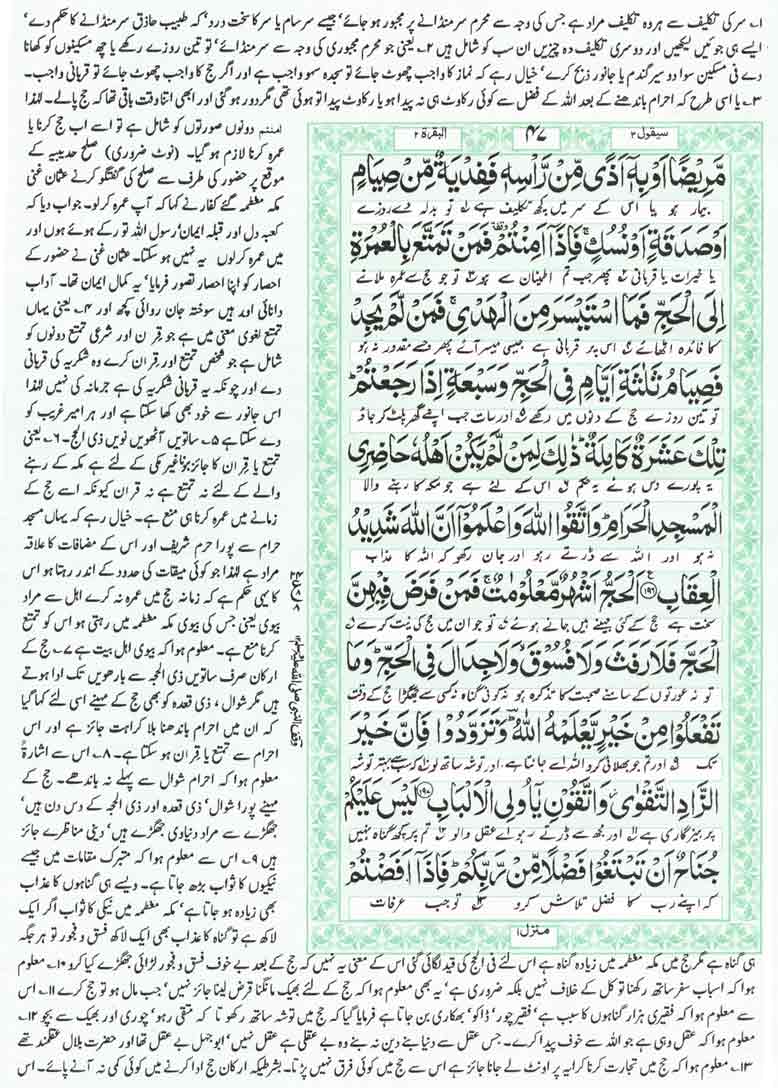 ۱۔ سر کی تکلیف سے ہر وہ تکلیف مراد ہے جس کی وجہ سے محرم سر منڈانے پر مجبور ہو جائے' جیسے سر سام یا سر کا سخت درد' کہ طبیب حاذق سر منڈانے کا حکم دے'
ایسے ہی جوئیں لیکھیں اور دوسری تکلیف دہ چیزیں ان سب کو شامل ہیں ۲۔ یعنی جو محرم مجبوری کی وجہ سے سر منڈائے' تو تین روزے رکھے یا چھ مسکینوں کو کھانا
دے فی مسکین سوا دو سیر گندم یا جانور ذبح کرے' خیال رہے کہ نماز کا واجب چھوٹ جائے تو سجدہ سہو واجب ہے اور اگر حج کا واجب چھوٹ جائے تو قربانی واجب۔
۳۔ یا اسی طرح کہ احرام باندھنے کے بعد اللہ کے فضل سے کوئی رکاوٹ ہی نہ پیدا ہو یا رکاوٹ پیدا تو ہوئی تھی مگر دور ہو گئی اور ابھی اتنا وقت باقی تھا کہ حج پا لے۔ لہٰذا
سیقول ۲
۴۷
البقرۃ ۲
مَّرِيْضًا اَوْ بِهٖۤ اَذًى مِّنْ رَّاْسِهٖ فَفِدْيَةٌ مِّنْ صِيَامٍ
بیمار ہو یا اس کے سر میں کچھ تکلیف ہے تو بدلہ دے روزے
اَوْ صَدَقَةٍ اَوْ نُسُكٍ ۚ فَاِذَاۤ اَمِنْتُمْ ۥ فَمَنْ تَمَتَّعَ بِالْعُمْرَةِ
یا خیرات یا قربانی پھر جب تم اطمینان سے ہو تو جو حج سے عمرہ ملانے
اِلَى الْحَجِّ فَمَا اسْتَيْسَرَ مِنَ الْهَدْيِ ۚ فَمَنْ لَّمْ يَجِدْ
کا فائدہ اٹھائے اس پر قربانی ہے جیسی میسر آئے پھر جسے مقدور نہ ہو
فَصِيَامُ ثَلٰثَةِ اَيَّامٍ فِى الْحَجِّ وَسَبْعَةٍ اِذَا رَجَعْتُمْ ؕ
تو تین روزے حج کے دنوں میں رکھے اور سات جب اپنے گھر پلٹ کر جاؤ
تِلْكَ عَشَرَةٌ كَامِلَةٌ ؕ ذٰلِكَ لِمَنْ لَّمْ يَكُنْ اَهْلُهٗ حَاضِرِى
یہ پورے دس ہوئے یہ حکم اس کے لئے ہے جو مکہ کا رہنے والا
الْمَسْجِدِ الْحَرَامِ ؕ وَاتَّقُوا اللّٰهَ وَاعْلَمُوْۤا اَنَّ اللّٰهَ شَدِيْدُ
نہ ہو اور اللہ سے ڈرتے رہو اور جان رکھو کہ اللہ کا عذاب
الْعِقَابِ ﴿۱۹۶﴾ اَلْحَجُّ اَشْهُرٌ مَّعْلُوْمٰتٌ ۚ فَمَنْ فَرَضَ فِيْهِنَّ
سخت ہے حج کے کئی مہینے ہیں جانے ہوئے تو جو ان میں حج کی نیت کرے
الْحَجَّ فَلَا رَفَثَ وَلَا فُسُوْقَ ۙ وَلَا جِدَالَ فِى الْحَجِّ ؕ وَمَا
تو نہ عورتوں کے سامنے صحبت کا تذکرہ ہو نہ کوئی گناہ نہ کسی سے جھگڑا حج کے وقت
تَفْعَلُوْا مِنْ خَيْرٍ يَّعْلَمْهُ اللّٰهُ ؔؕ وَتَزَوَّدُوْا فَاِنَّ خَيْرَ
تک اور تم جو بھلائی کرو اللہ اسے جانتا ہے اور توشہ ساتھ لو کہ سب سے بہتر توشہ
الزَّادِ التَّقْوٰى ؗ وَاتَّقُوْنِ يٰۤاُولِى الْاَلْبَابِ ﴿۱۹۷﴾ لَيْسَ عَلَيْكُمْ
پرہیزگاری ہے اور مجھ سے ڈرتے رہو اے عقل والو تم پر کچھ گناہ نہیں
جُنَاحٌ اَنْ تَبْتَغُوْا فَضْلًا مِّنْ رَّبِّكُمْ ؕ فَاِذَاۤ اَفَضْتُمْ
کہ اپنے رب کا فضل تلاش کرو تو جب عرفات
منزل ۱
وقف النبی صلی اللہ علیہ وسلم
امنتم دونوں صورتوں کو شامل ہے تو اسے اب حج کرنا یا
عمرہ کرنا لازم ہو گیا۔ (نوٹ ضروری) صلح حدیبیہ کے
موقع پر حضور کی طرف سے صلح کی گفتگو کرنے عثمان غنی
مکہ معظمہ گئے کفار نے کہا کہ آپ عمرہ کر لو۔ جواب دیا کہ
کعبہ دل اور قبلہ ایمان' رسول اللہ تو رکے ہوئے ہوں اور
میں عمرہ کر لوں یہ نہیں ہو سکتا۔ عثمان غنی نے حضور کے
احصار کو اپنا احصار تصور فرمایا' یہ کمال ایمان تھا۔ آداب
دانائی اور ہیں سوختہ جان روائی کچھ اور ۴۔ یعنی یہاں
تمتع لغوی معنی میں ہے جو قران اور شرعی تمتع دونوں کو
شامل ہے جو شخص تمتع اور قران کرے وہ شکریہ کی قربانی
دے اور چونکہ یہ قربانی شکریہ کی ہے جرمانہ کی نہیں لہٰذا
اس جانور سے خود بھی کھا سکتا ہے اور ہر امیر غریب کو
دے سکتا ہے ۵۔ ساتویں آٹھویں نویں ذی الحج۔ ۶۔ یعنی
تمتع یا قران کا جائز ہونا غیر مکی کے لئے ہے مکہ کے رہنے
والے کے لئے نہ تمتع ہے نہ قران کیونکہ اسے حج کے
زمانے میں عمرہ کرنا ہی منع ہے۔ خیال رہے کہ یہاں مسجد
حرام سے پورا حرم شریف اور اس کے مضافات کا علاقہ
مراد ہے لہٰذا جو کوئی میقات کی حدود کے اندر رہتا ہو اس
کا یہی حکم ہے کہ زمانہ حج میں عمرہ نہ کرے اہل سے مراد
بیوی یعنی جس کی بیوی مکہ معظمہ میں رہتی ہو اس کو تمتع
کرنا منع ہے۔ معلوم ہوا کہ بیوی اہل بیت ہے ۷۔ حج کے
ارکان صرف ساتویں ذی الحجہ سے بارھویں تک ادا ہوتے
ہیں مگر شوال' ذی قعدہ کو بھی حج کے مہینے اسی لئے کہا گیا
کہ ان میں احرام باندھنا بلا کراہت جائز ہے اور اس
احرام سے تمتع یا قران ہو سکتا ہے۔ ۸۔ اس سے اشارۃً
معلوم ہوا کہ احرام شوال سے پہلے نہ باندھے۔ حج کے
مہینے پورا شوال' ذی قعدہ اور ذی الحجہ کے دس دن ہیں'
جھگڑے سے مراد دنیاوی جھگڑے ہیں' دینی مناظرے جائز
ہیں ۹۔ اس سے معلوم ہوا کہ متبرک مقامات میں جیسے
نیکیوں کا ثواب بڑھ جاتا ہے۔ ویسے ہی گناہوں کا عذاب
بھی زیادہ ہو جاتا ہے' مکہ معظمہ میں نیکی کا ثواب اگر ایک
لاکھ ہے تو گناہ کا عذاب بھی ایک لاکھ فسق و فجور تو ہر جگہ
ہی گناہ ہے مگر حج میں مکہ معظمہ میں زیادہ گناہ ہے اس لئے فی الحج کی قید لگائی گئی اس کے معنی یہ نہیں کہ حج کے بعد بے خوف فسق و فجور لڑائی جھگڑے کیا کرو ۱۰۔ معلوم
ہوا کہ اسباب سفر ساتھ رکھنا توکل کے خلاف نہیں بلکہ ضروری ہے' یہ بھی معلوم ہوا کہ حج کے لئے بھیک مانگنا قرض لینا جائز نہیں' جب مال ہو تو حج کرے ۱۱۔ اس
سے معلوم ہوا کہ فقیری ہزار گناہوں کا سبب ہے' فقیر چور' ڈاکو' بھکاری بن جاتا ہے فرمایا گیا کہ حج میں توشہ ساتھ رکھو تا کہ متقی رہو' چوری اور بھیک سے بچو ۱۲۔
معلوم ہوا کہ عقل وہی ہے جو اللہ سے خوف پیدا کرے۔ جس عقل سے دنیا بنے دین نہ بنے وہ بے عقلی ہے عقل نہیں' ابو جہل بے عقل تھا اور حضرت بلال عقلمند تھے
۱۳۔ معلوم ہوا کہ حج میں تجارت کرنا کرایہ پر اونٹ لے جانا جائز ہے اس سے حج میں کوئی فرق نہیں پڑتا۔ بشرطیکہ ارکان حج ادا کرنے میں کوئی کمی نہ آنے پائے۔ اس